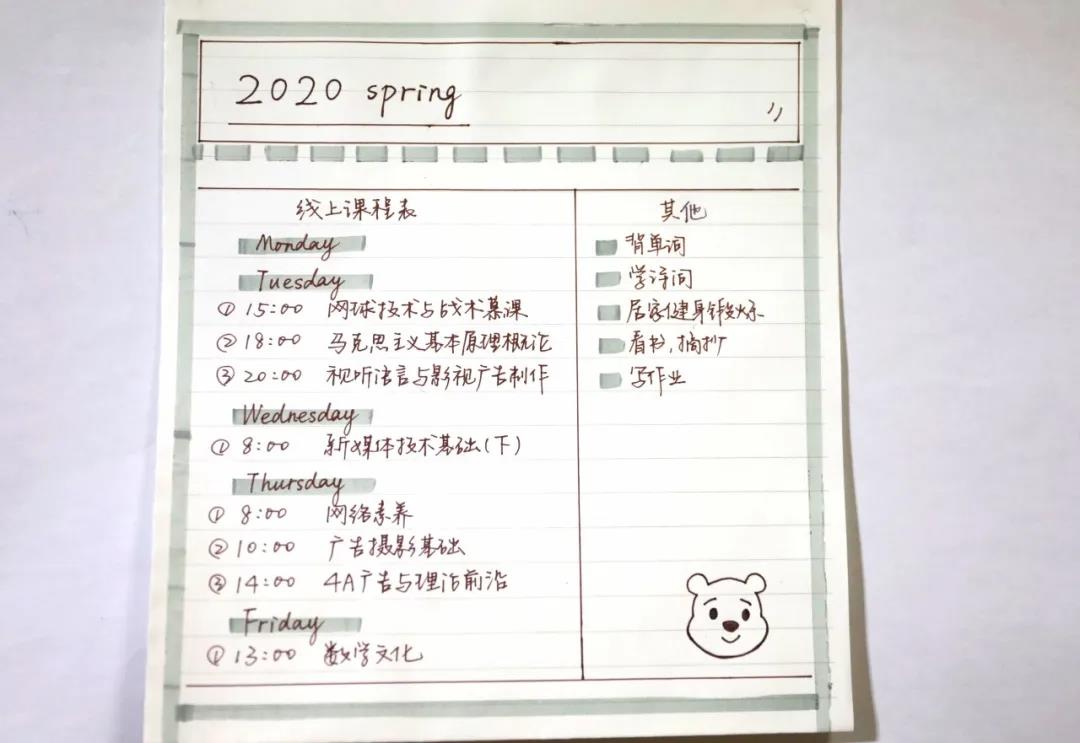 2020 spring
线上课程表
Monday
Tuesday
① 15:00 网球技术与战术慕课
② 18:00 马克思主义基本原理概论
③ 20:00 视听语言与影视广告制作
Wednesday
① 8:00 新媒体技术基础(下)
Thursday
① 8:00 网络素养
② 10:00 广告摄影基础
③ 14:00 4A广告与理论前沿
Friday
① 13:00 数学文化
其他
背单词
学诗词
居家健身锻炼
看书,摘抄
写作业